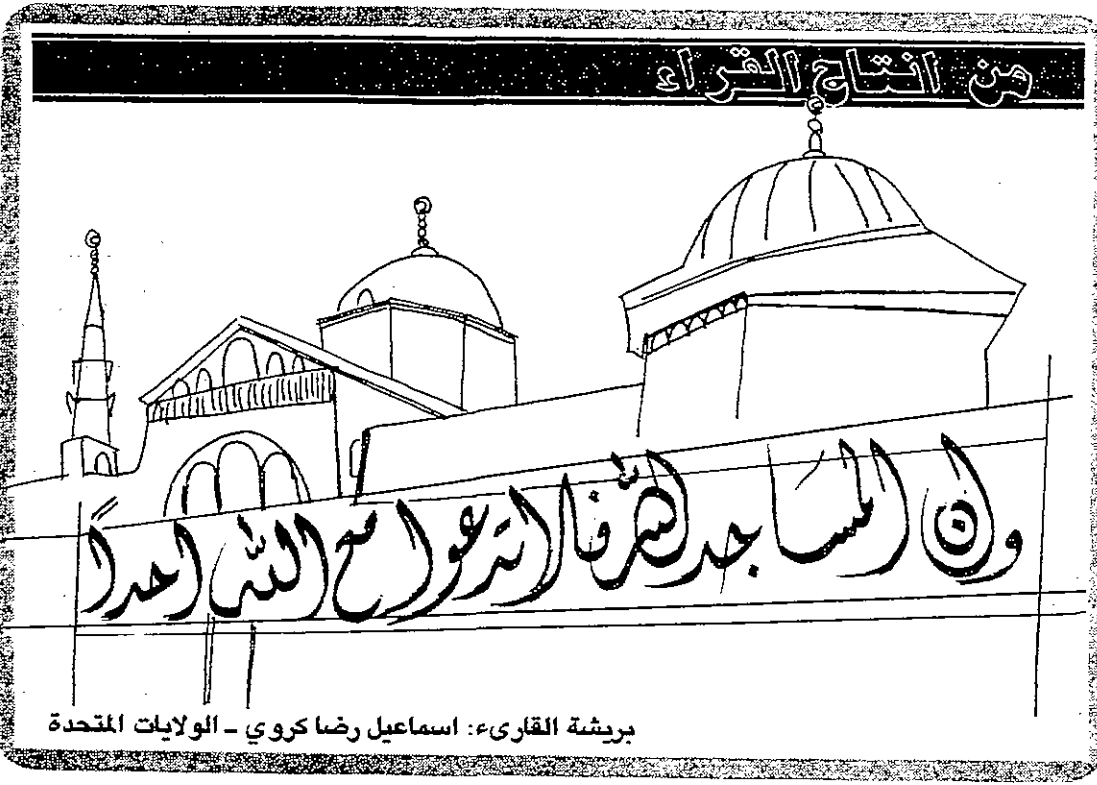 من انتاج القراء
وان المساجد لله فلا تدعوا مع الله احداً
بريشة القارىء: اسماعيل رضا كروي ـ الولايات المتحدة